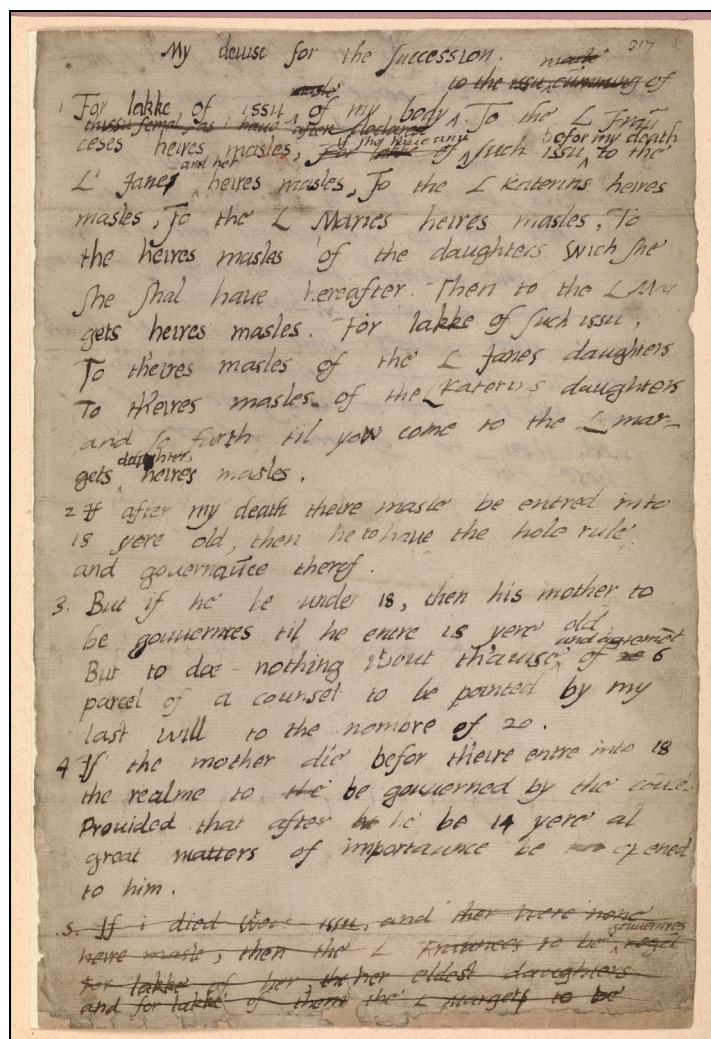 317
My deuise for the succession.
masle masle
to the issu cumming of
1 For lakke of issu of my body. To the L Frau
thissu femal, as i haue after declared
if she haue any befor my death
ceses heires masles, For lakke of such issu, to the
and her
L' Janes heires masles, To the L Katerins heires
masles, To the L Maries heires masles, To
the heires masles of the daughters wich she
she shal haue hereafter. Then to the L Mar
gets heires masles. For lakke of such issu,
To theires masles of the L Janes daughters
To theires masles of the L Katerins daughters
and so furth til yow come to the L mar
daughters
gets heires masles.
2 If after my death theire masle be entred into
18 yere old, then he to haue the hole rule
and gouernaūce therof.
3. But if he be under 18, then his mother to
be gouuernres til he entre 18 yere old
and agremēt
But to doe nothing wout thauise of 6
parcel of a counsel to be pointed by my
last will to the nombre of 20.
4 If the mother die befor theire entre into 18
the realme to the be gouuerned by the coūcel
Prouided that after he be 14 yere al
great matters of importaunce be opened
to him.
5. If i died wout issu, and ther were none
gouuernres
heire masle, then the L Fraunces to be regēt
For lakke of her, the her eldest daughters
and for lakke of them the L Margets to be